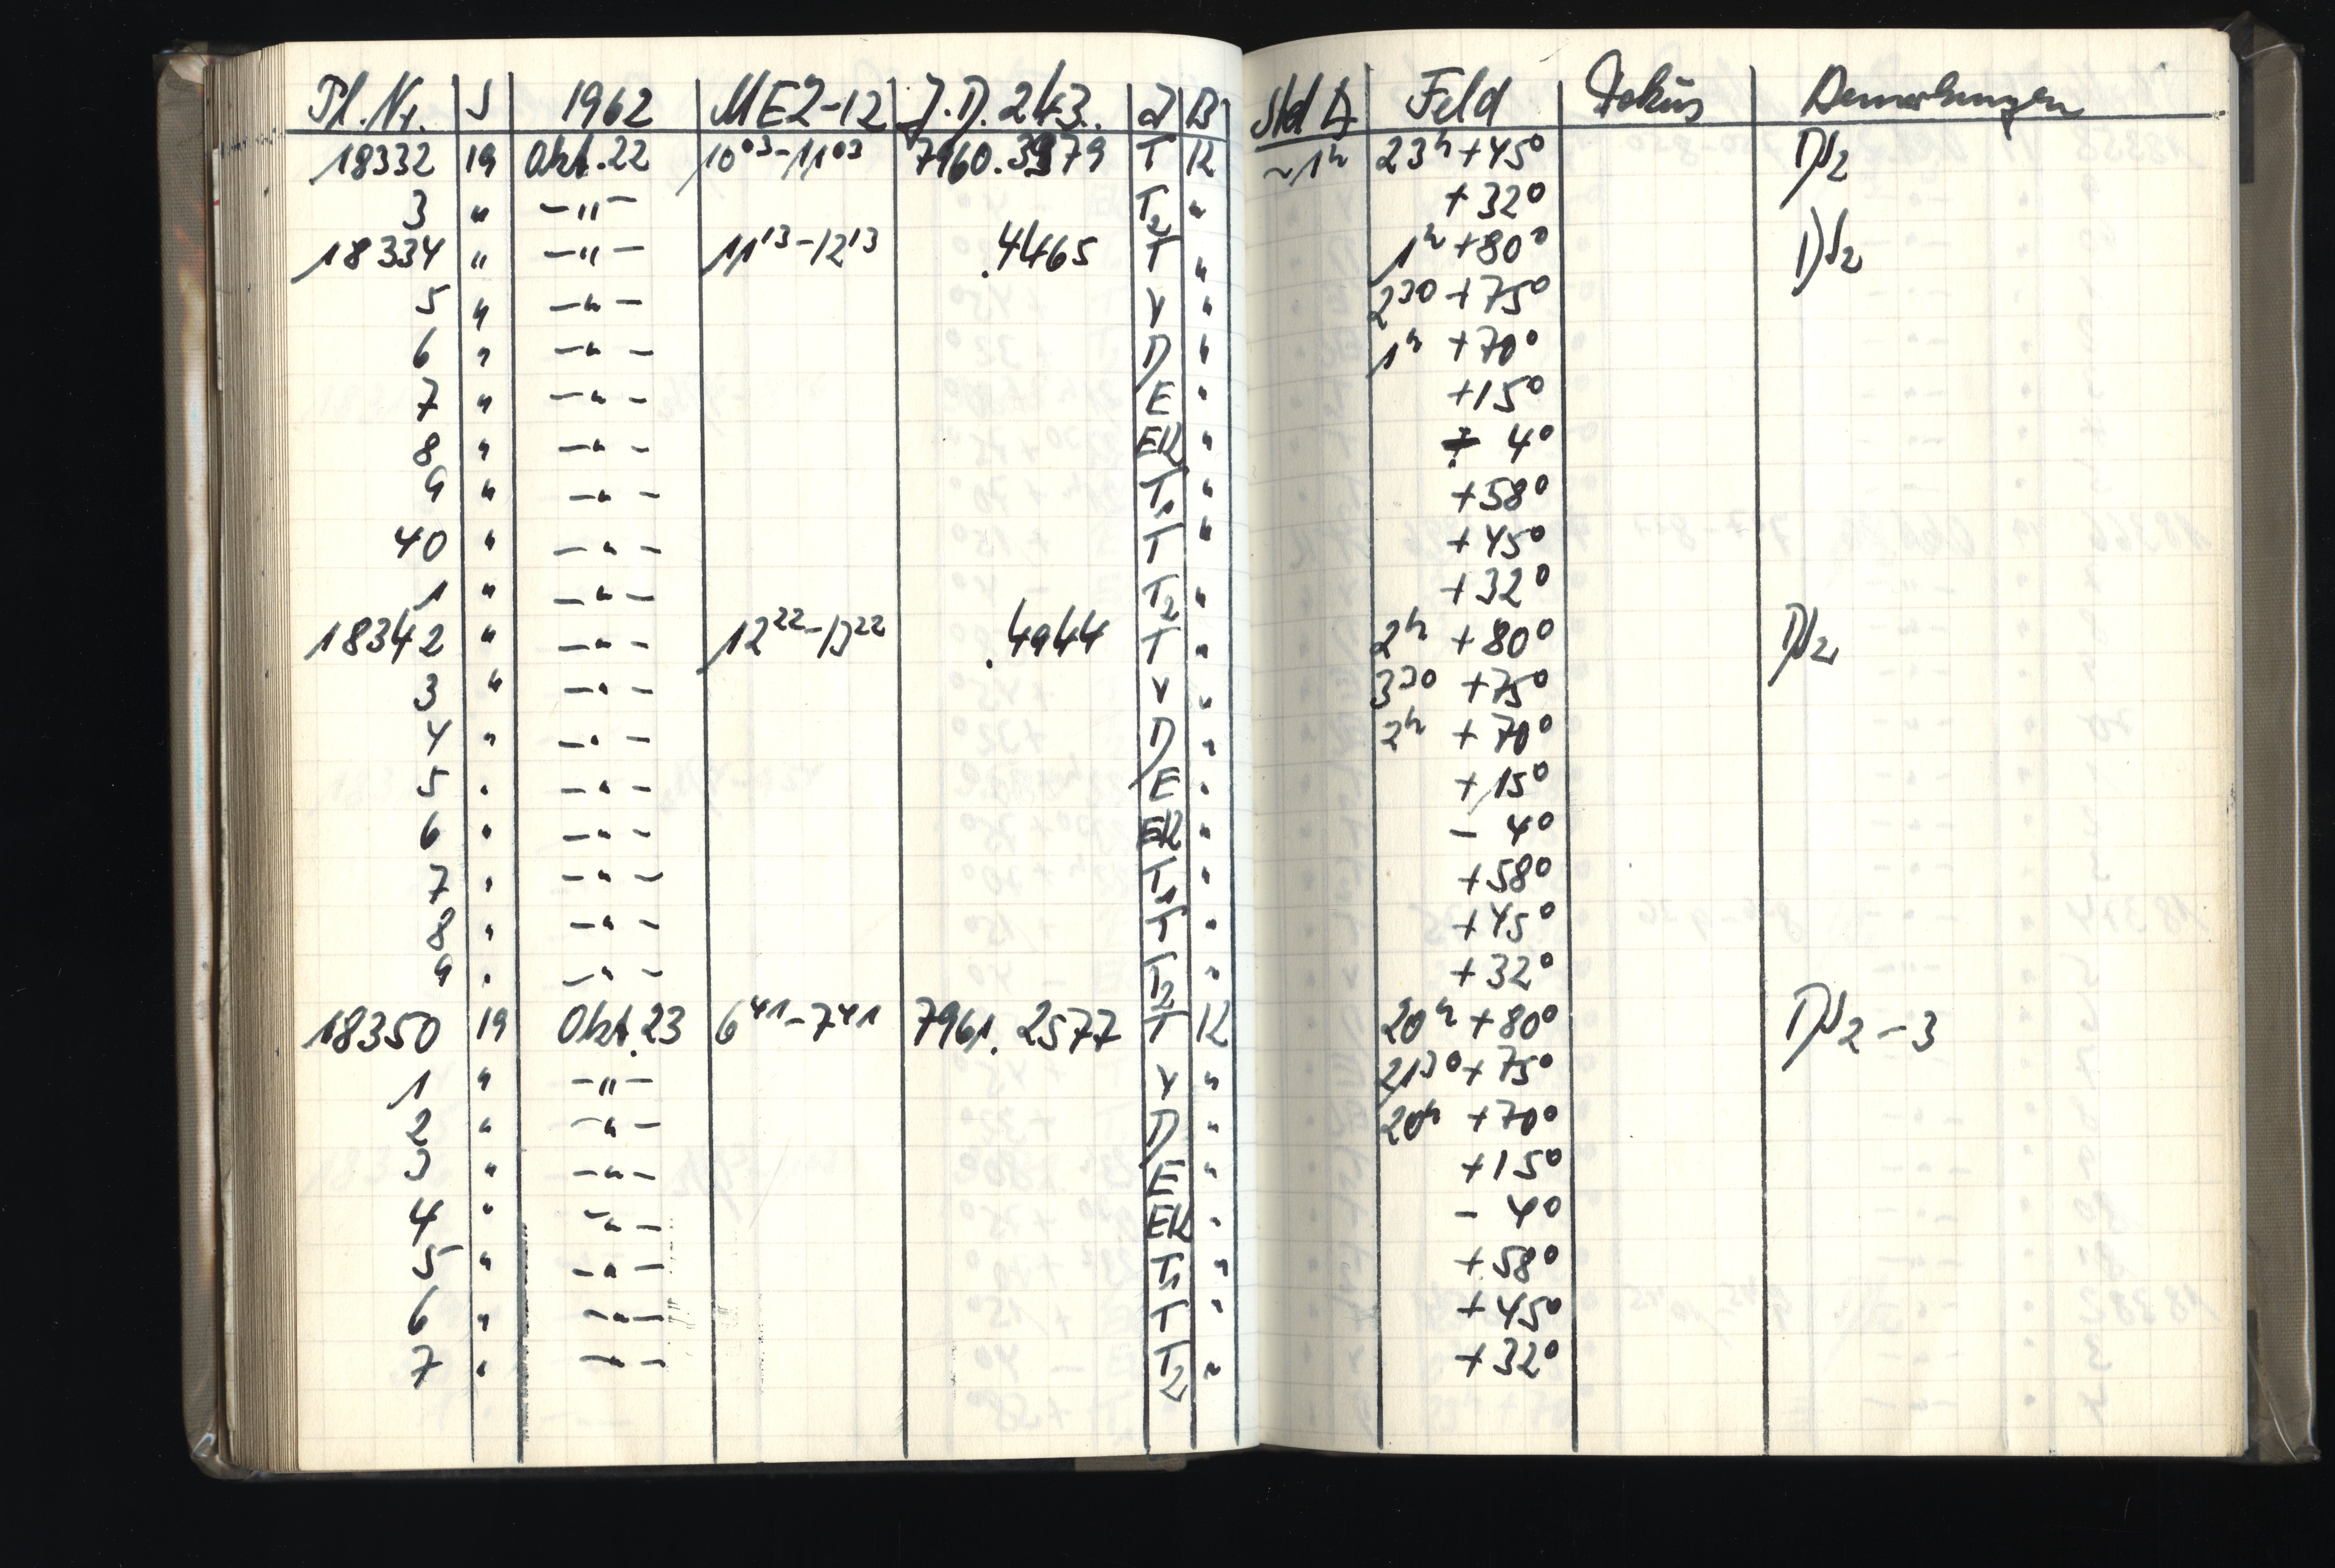 Pl. Nr. S 1962 MEZ-12 J.D. 243.. J B Std ∆ Feld Fokus Bemerkungen
18332 19 Okt. 22 10⁰³-11⁰³ 7960.3979 T K ~1ʰ 23ʰ +45° DS2
3 " -"- T₂ " +32°
18334 " -"- 11¹³-12¹³ .4465 T " 1ʰ +80° DS2
5 " -"- V " 2³⁰ +75°
6 " -"- D " 1ʰ +70°
7 " -"- E " +15°
8 " -"- EK " 4°
9 " -"- T₁ " +58°
40 " -"- T " +45°
1 " -"- T₂ " +32°
18342 " -"- 12²²-13²² .4944 T " 2ʰ +80° DS2
3 " -"- V " 3³⁰ +75°
4 " -"- D " 2ʰ +70°
5 " -"- E " +15°
6 " -"- EK " - 4°
7 " -"- T₁ " +58°
8 " -"- T " +45°
9 " -"- T₂ " +32°
18350 19 Okt. 23 6⁴¹-7⁴¹ 7961.2577 T K 20ʰ +80° DS2-3
1 " -"- V " 21³⁰ +75°
2 " -"- D " 20ʰ +70°
3 " -"- E " +15°
4 " -"- EK " - 4°
5 " -"- T₁ " +58°
6 " -"- T " +45°
7 " -"- T₂ " +32°